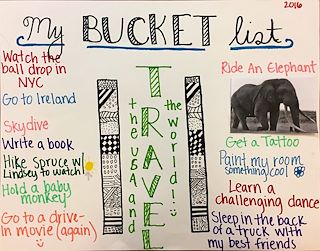 2016
My BUCKET list
Watch the
ball drop in
NYC
Go to Ireland
Skydive
Write a book
Hike Spruce w/
Lindsey to watch
Hold a baby
monkey
Go to a drive-
in movie (again)
TRAVEL
the USA and
the world! :)
Ride An Elephant
Get a Tattoo
Paint my room
something cool
Learn a
challenging dance
Sleep in the back
of a truck with
my best friends